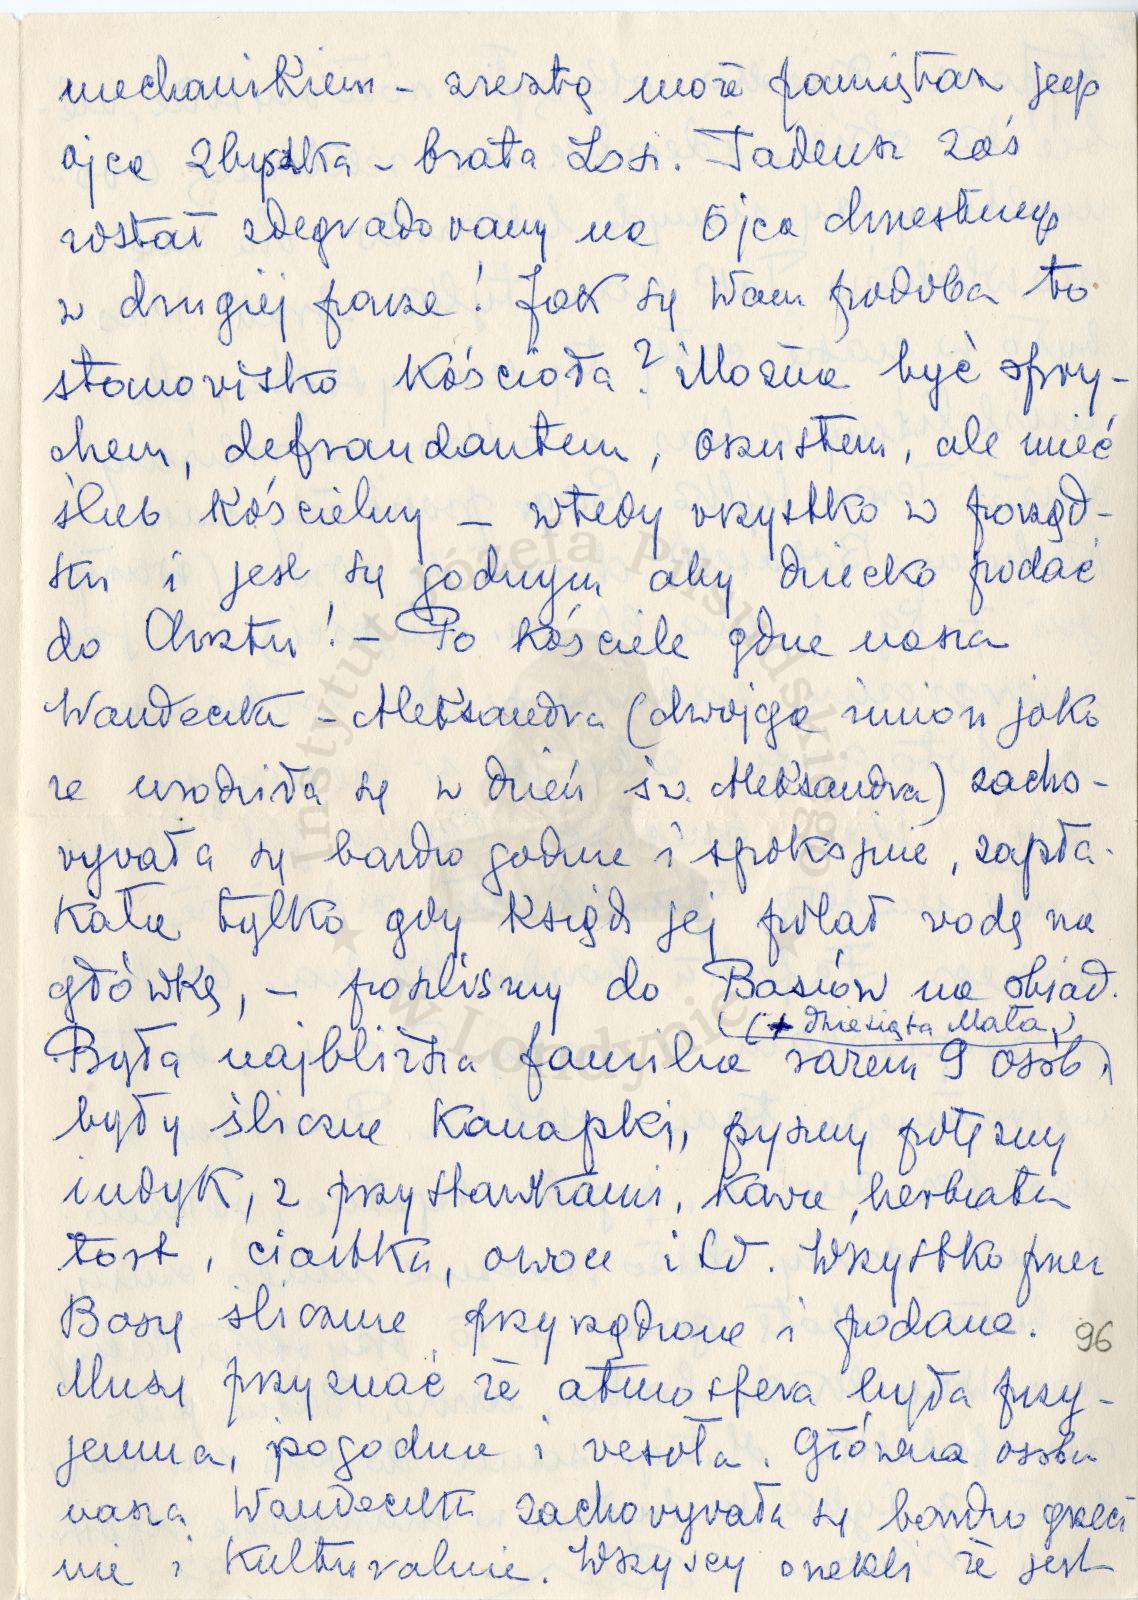 mechanikiem – zresztą może pamiętasz jego
ojca Zbyszka – brata Losi. Tadeusz zaś
został zdegradowany na ojca chrzestnego
w drugiej parze! Jak się Wam podoba to
stanowisko Kościoła? Można być opry-
chem, defraudantem, oszustem, ale mieć
ślub kościelny – wtedy wszystko w porząd-
ku i jest się godnym aby dziecko podać
do Chrztu! – Po kościele gdzie nasza
Wandeczka – Aleksandra (dwojga imion jako
że urodziła się w dzień św. Aleksandra) zacho-
wywała się bardzo godnie i spokojnie, zapła-
kała tylko gdy ksiądz jej polał wodą na
główkę, – poszliśmy do Basiów na obiad.
(+ dziesiąta Mała)
Była najbliższa familia razem 9 osób,
były śliczne kanapki, pyszny potężny
indyk, z przystawkami, kawa, herbata
tort, ciastka, owoce itd. Wszystko przez
Basię ślicznie przyrządzone i podane.
96
Muszę przyznać że atmosfera była przy-
jemna, pogodna i wesoła. Główna osoba
nasza Wandeczka zachowywała się bardzo grzecz
nie i kulturalnie. Wszyscy orzekli że jest
Instytut Józefa Piłsudskiego
w Londynie